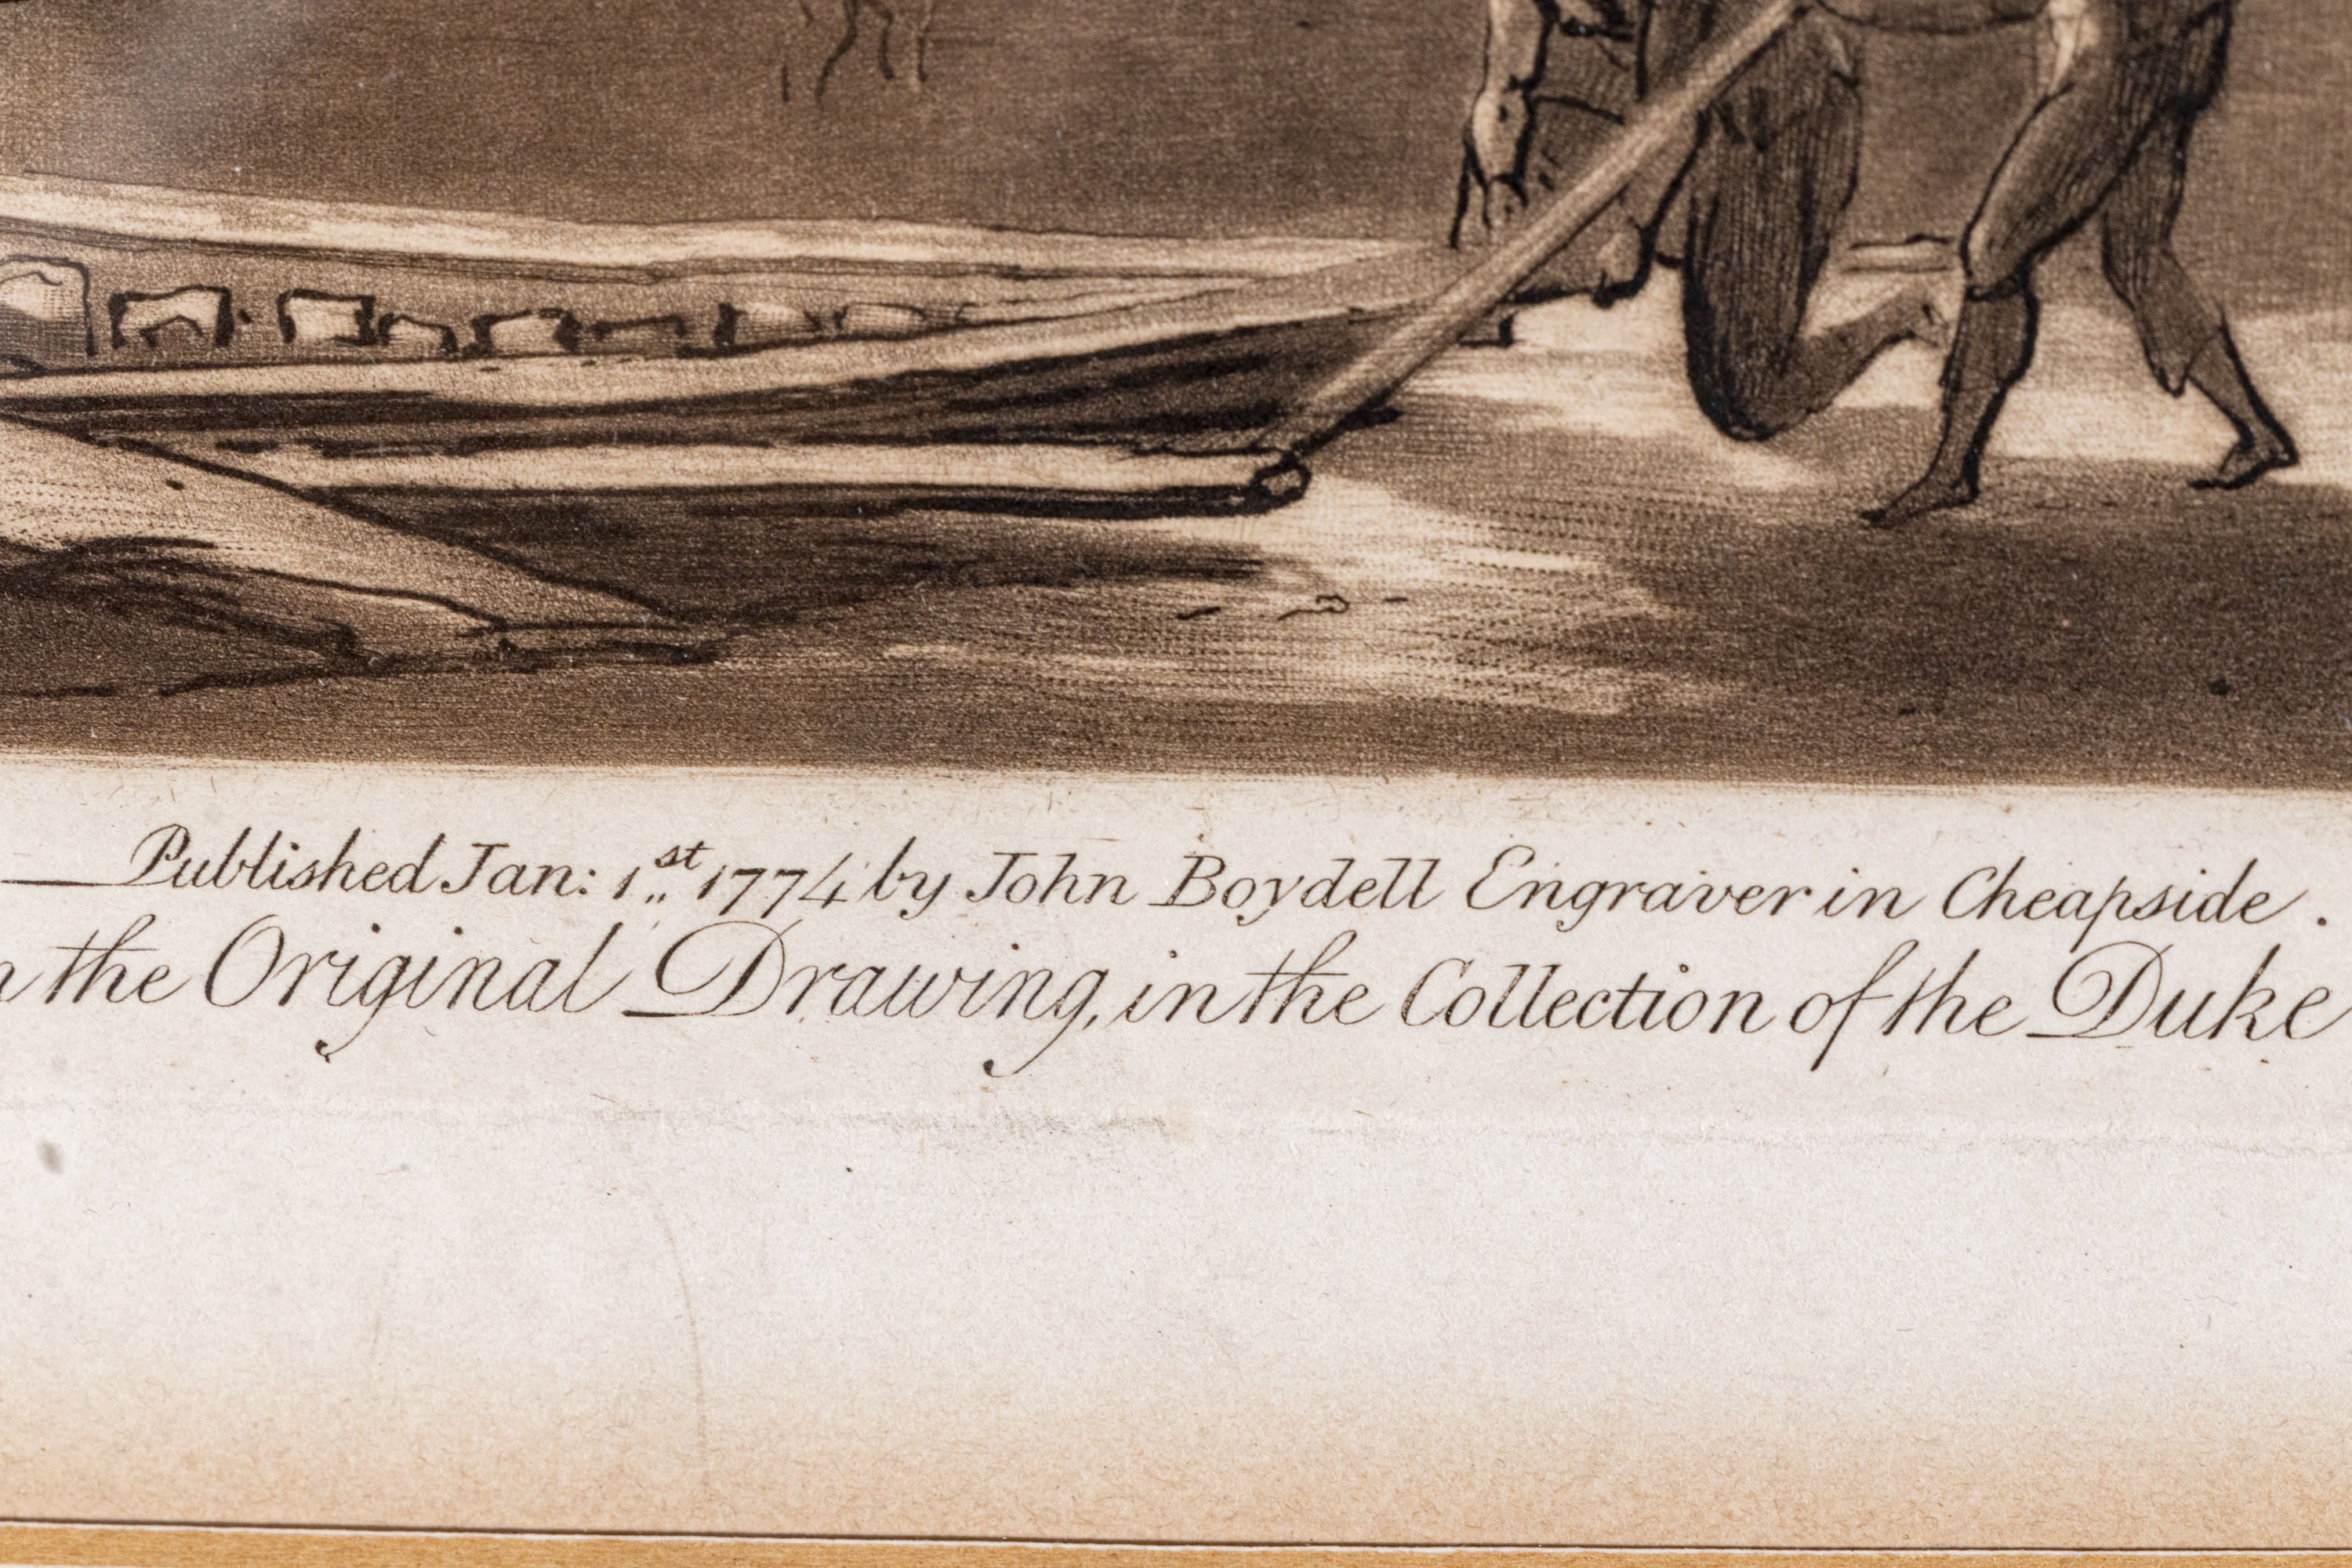 Published Jan: 1st 1774 by John Boydell Engraver in Cheapside.
the Original Drawing, in the Collection of the Duke